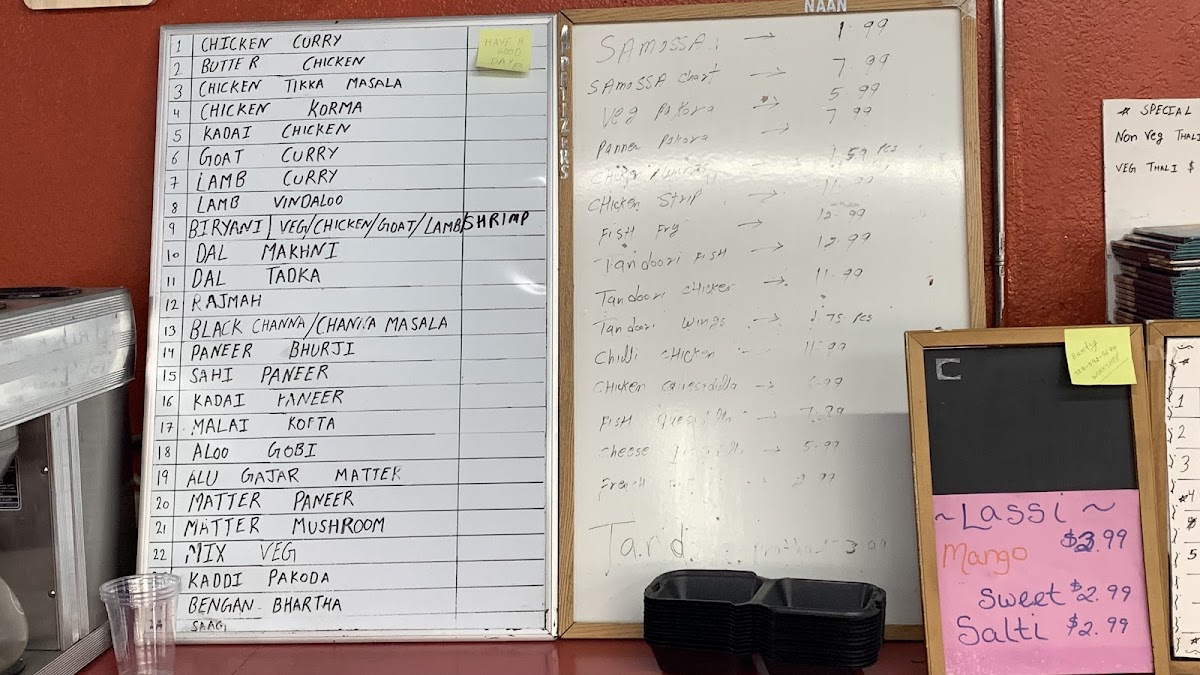 1 CHICKEN CURRY
2 BUTTER CHICKEN
3 CHICKEN TIKKA MASALA
4 CHICKEN KORMA
5 KADAI CHICKEN
6 GOAT CURRY
7 LAMB CURRY
8 LAMB VINDALOO
9 BIRYANI | VEG/CHICKEN/GOAT/LAMB/SHRIMP
10 DAL MAKHNI
11 DAL TADKA
12 RAJMAH
13 BLACK CHANNA/CHANNA MASALA
14 PANEER BHURJI
15 SAHI PANEER
16 KADAI PANEER
17 MALAI KOFTA
18 ALOO GOBI
19 ALU GAJAR MATTER
20 MATTER PANEER
21 MATTER MUSHROOM
22 MIX VEG
KADDI PAKODA
BENGAN BHARTHA
24 SAAG
HAVE A
GOOD
DAY
APPETIZERS
NAAN
SAMOSSA → 1.99
SAMOSSA chart → 7.99
Veg Pakora → 5.99
Panner Pakora → 7.99
1.59 Pcs
CHicken Strip → 11.99
FISH Fry → 12.99
Tandoori FISH → 12.99
Tandoori CHicken → 11.99
Tandoori Wings → 1.75 Pcs
Chilli CHicken 11.99
CHicken →
FISH → 7.89
Cheese → 5.99
French
3.99
* SPECIAL
Non Veg THALI
VEG THALI $
C
Bunty
~LASSI~
Mango $3.99
Sweet $2.99
Salti $2.99
1
2
3
*4
5